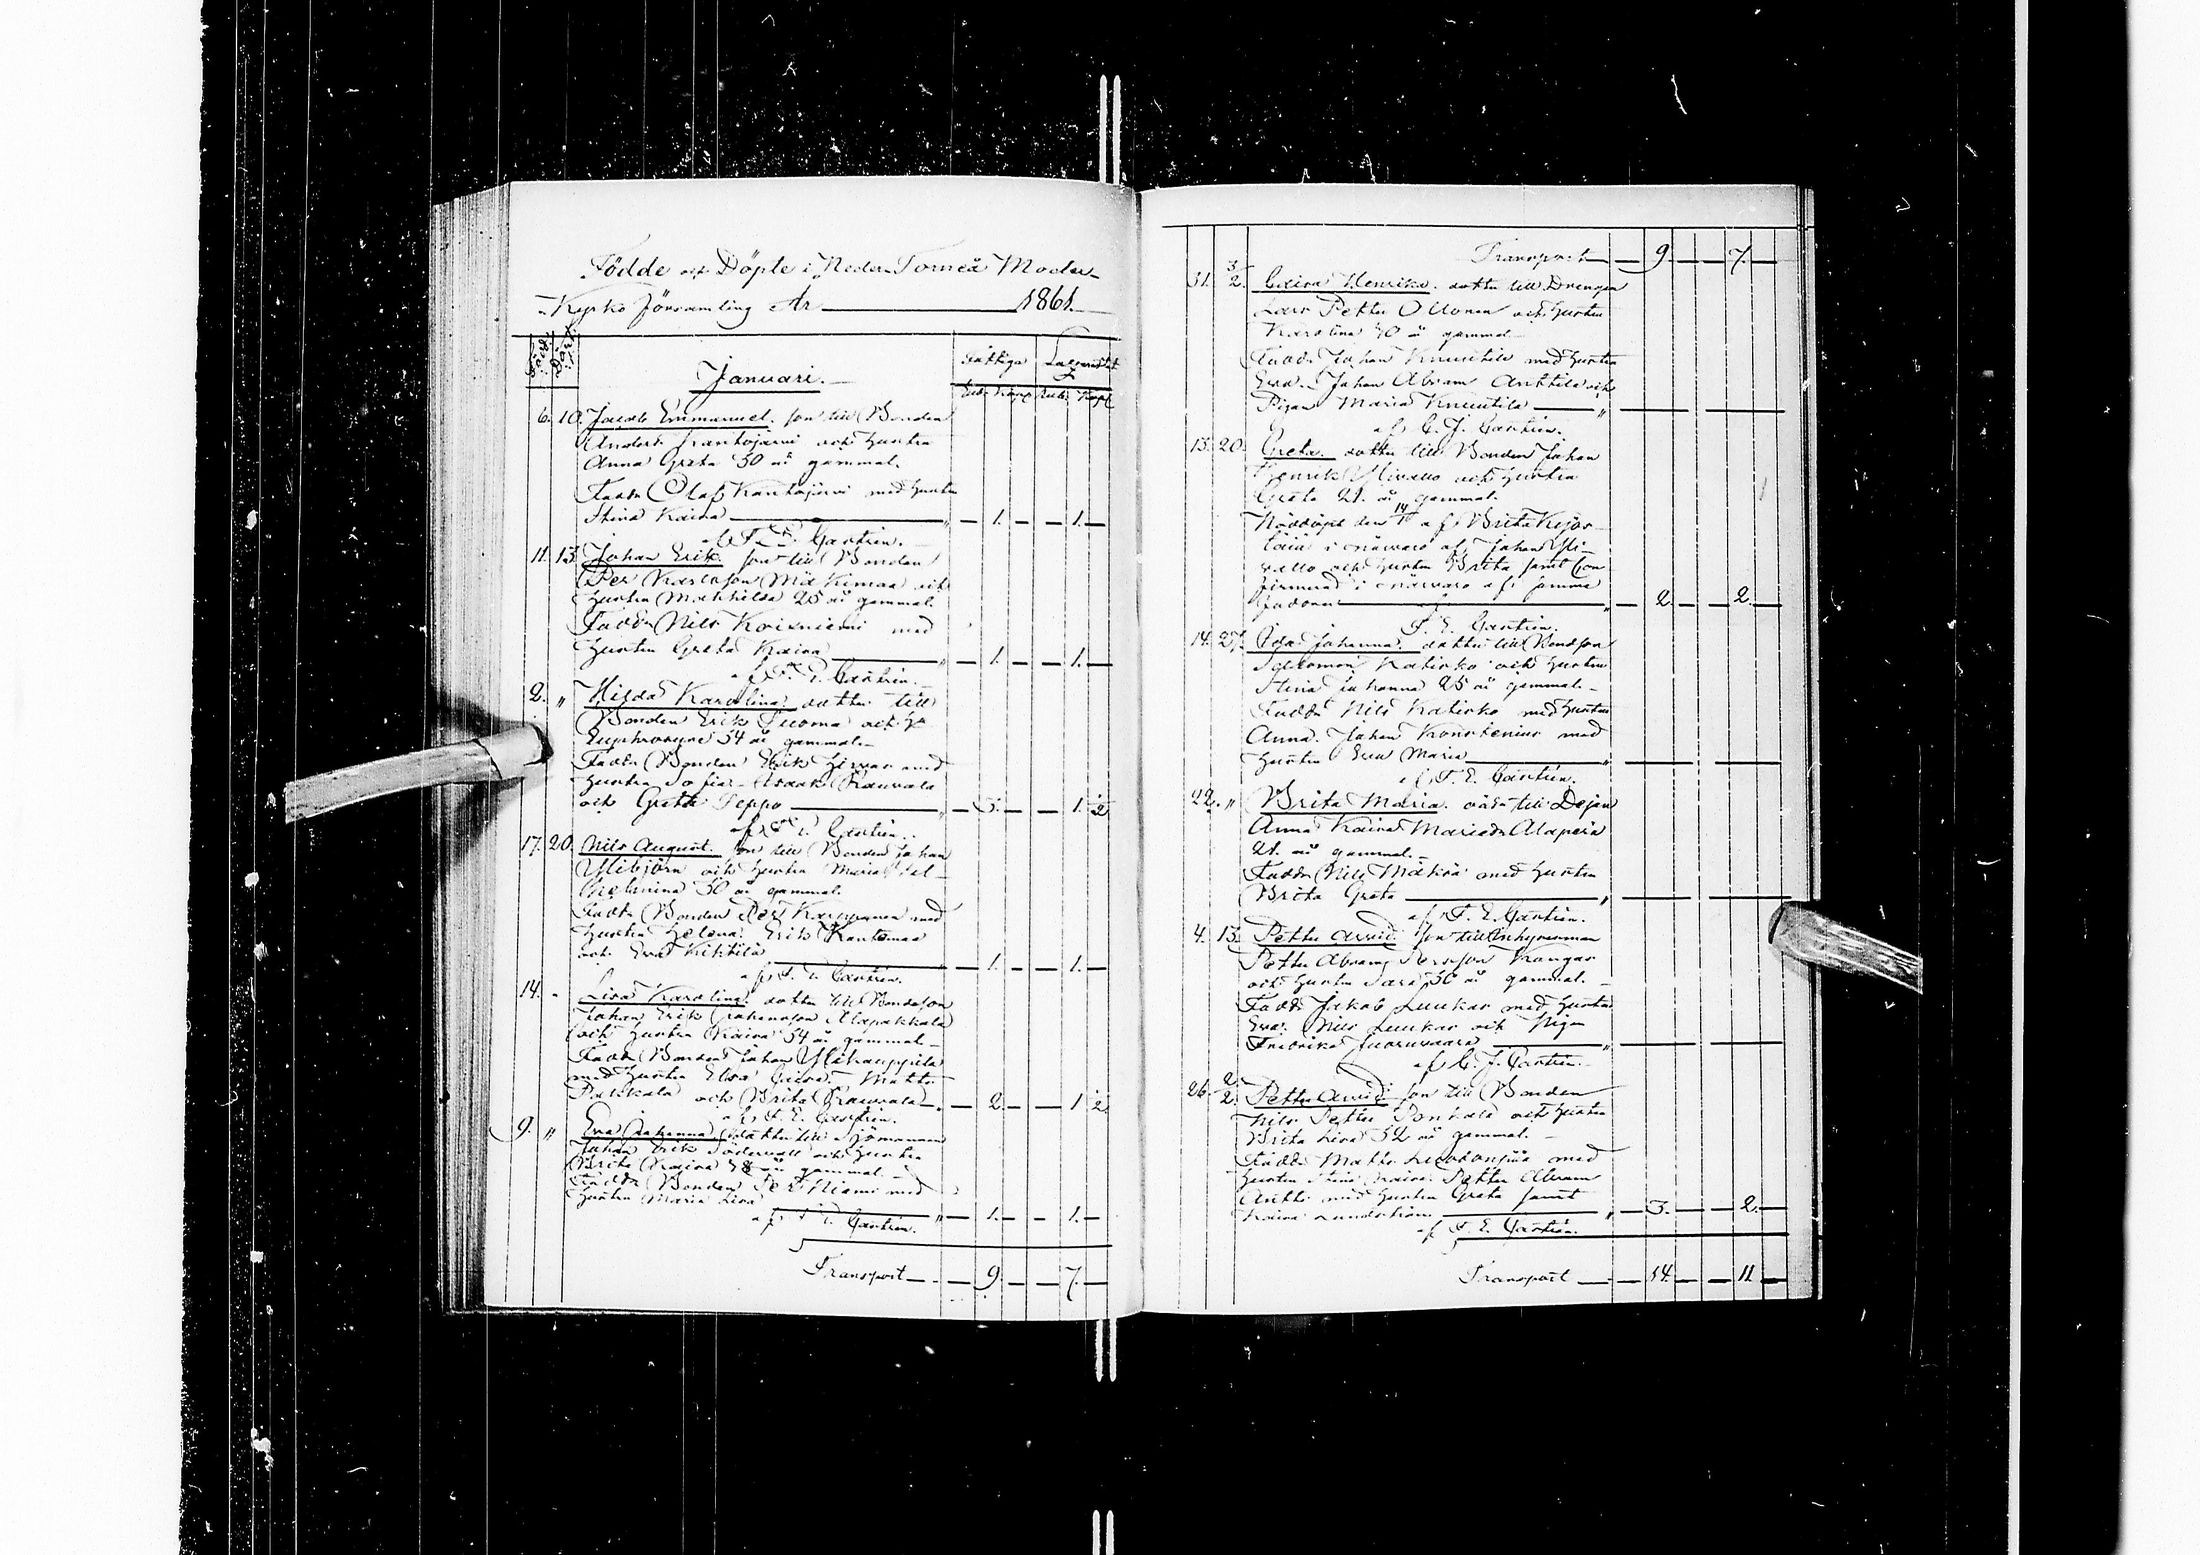 Födde och Döpte i Neder Torneå Moder-
Kyrko församling År 1861.
Född. Döpt. Fattiga Lazarettet
Januari.
Rub. Kopp. Rub. Kopp.
6. 10. Jacob Emmanuel. son till Bonden
Anders Kantojärvi och hustru
Anna Greta 30 år gammal.
Fadd. Olof Kantojärvi med hustru
Stina Kaisa 1. 1.
af F. E. Castrén.
11. 13. Johan Erik. son till Bonden
Per Karlsson Mäkimaa och
hustru Mathilda 25 år gammal.
Fadd. Nils Koivuniemi med
hustru Greta Kaisa 1. 1.
af F. E. Castrén.
2. " Hilda Karolina. dotter till
Bonden Erik Tuoma och H.
Euphrosyne 34 år gammal.
Fadd. Bonden Erik med
hustru Sofia. Isaak Rauvala
och Greta Seppo 3. 1. 2
af F. E. Castrén.
17. 20. Nils August. son till Bonden Johan
Ylibjörn och hustru Maria Vil-
helmina 30 år gammal.
Fadd. Bonden Per Kauppinen med
hustru Helena. Erik Rantamaa
och Eva Kikkilä 1. 1.
af F. E. Castrén.
14. " Lisa Karolina. dotter till Bondeson
Johan Erik Johansson Alapakkala
och hustru Kaisa 34 år gammal.
Fadd. Bonden Johan Ylikauppila
med hustru Elsa Caisa. Matts
Pakkala och Brita Rauvala 2. 1. 2
af F. E. Castrén.
9. " Eva Johanna. dotter till Sjömannen
Johan Erik Södervall och hustru
Brita Kaisa 48 år gammal.
Fadd. Bonden Per Niemi med
hustru Maria Lisa 1. 1.
af F. E. Castrén.
Transport 9. 7.
Transport 9. 7.
31. 3/2. Caisa Henrika. dotter till Drengen
Lars Petter Ollonen och hustru
Karolina 40 år gammal.
Fadd. Johan Knuutila med hustru
Eva. Johan Abram Anttila och
Pigan Maria Knuutila "
af C. J. Castrén.
13. 20. Greta. dotter till Bonden Johan
Henrik Ylivallo och hustru
Greta 21. år gammal.
Nöddöpt den 14 af Brita
i närvaro af Johan Yli-
vallo och hustru Brita samt Con
firmerad i närvaro af samma
faddrar 2. 2.
F. E. Castrén.
14. 27. Ida Johanna. dotter till Bondeson
Salomon Katisko och hustru
Stina Johanna 25 år gammal.
Fadd. Nils Katisko med hustru
Anna. Johan Konstenius med
hustru Eva Maria "
af F. E. Castrén.
22. " Brita Maria. oäkta till Dejan
Anna Kaisa Mariadr Alaperä
21. år gammal.
Fadd. Nils Mäkrä med hustru
Brita Greta "
af F. E. Castrén.
4. 13. Petter Arvid. son till Inhysesman
Petter Abram Persson Kangas
och hustru Sara 30 år gammal.
Fadd. Jakob Luukas med hustru
Eva. Nils Luukas och Pigan
Fredrika Juoruvaara "
af C. J. Castrén.
26. 2/2. Petter Arvid. son till Bonden
Nils Petter Ponkala och hustru
Brita Lisa 32 år gammal.
Fadd. Matts med
hustru Stina Kaisa. Petter Abram
Antti med hustru Greta samt
Kaisa Lundström 3. 2.
af F. E. Castrén.
Transport 14. 11.